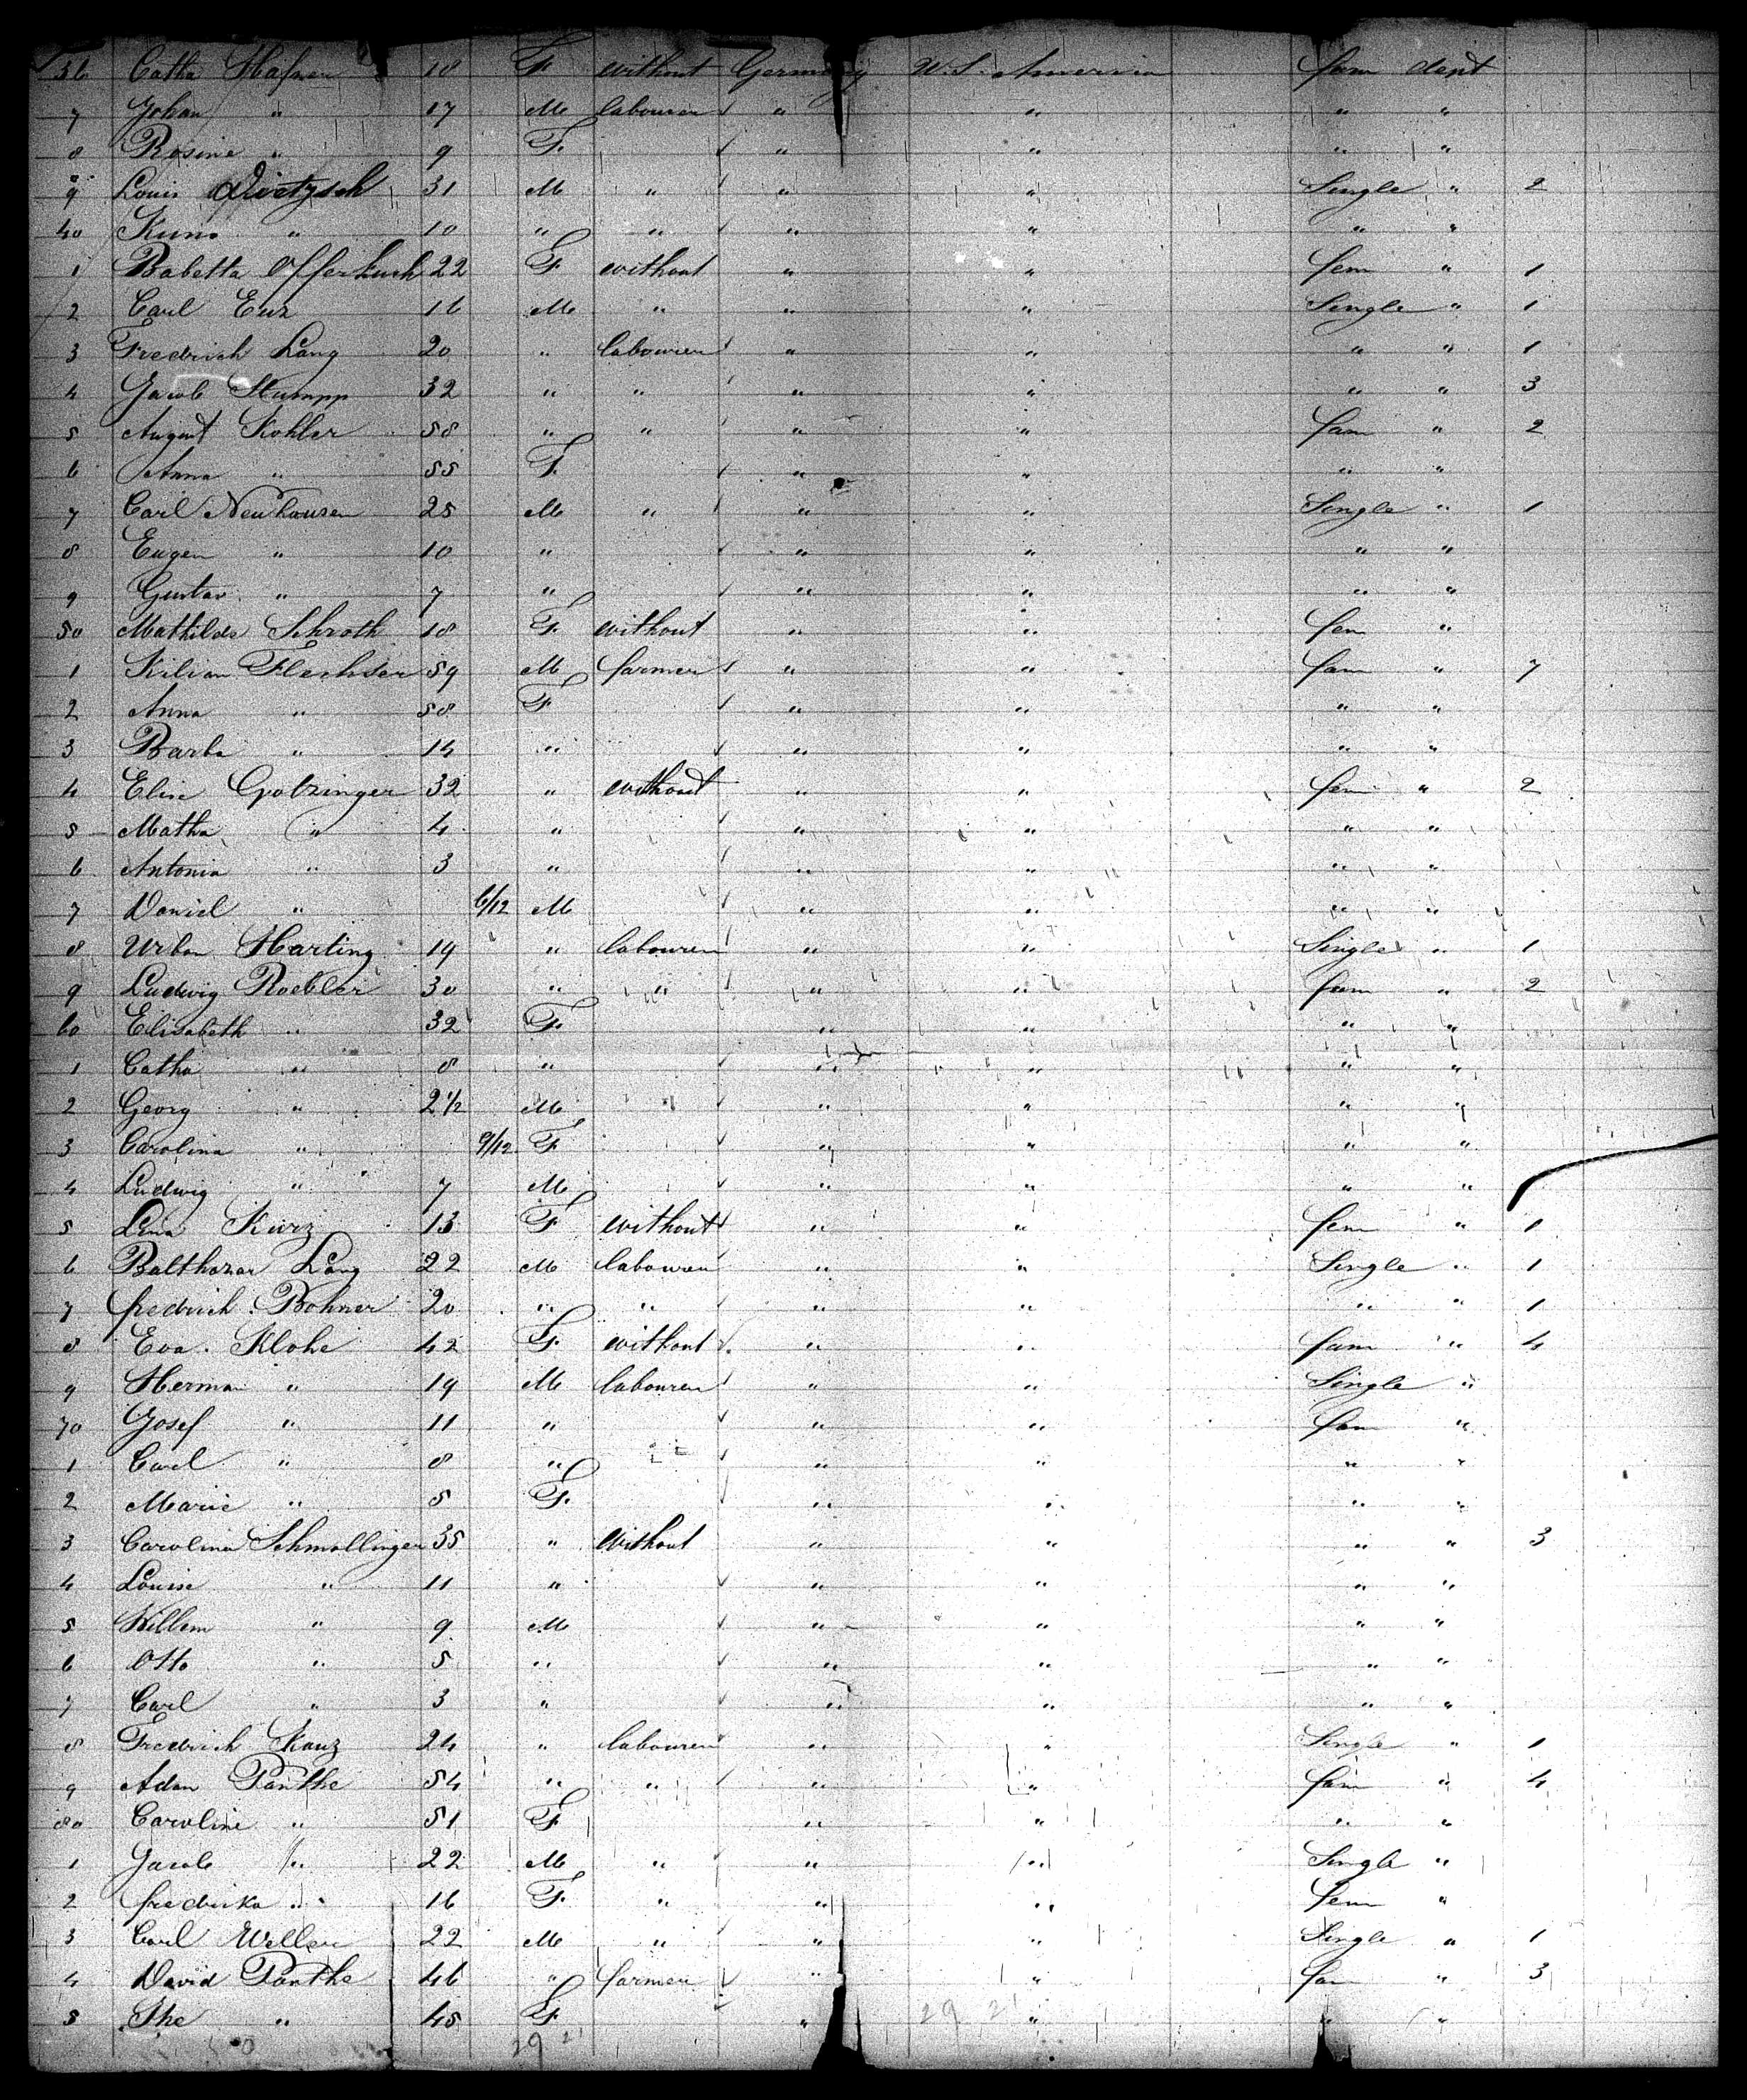 36 Catha Hafner 18 F without Germany U.S. America fam dept
7 Johan " 17 M labourer " " " "
8 Rosine " 9 F " " " "
9 Louis Dietzsch 31 M " " " Single " 2
40 Kuno " 10 " " " " " "
1 Babetta Offerkuch 22 F without " " fem " 1
2 Carl Enz 16 M " " " Single " 1
3 Fredrich Lang 20 " labourer " " " " 1
4 Jacob Stumpp 32 " " " " " " 3
5 August Kohler 58 " " " " fam " 2
6 Anna " 55 F " " " "
7 Carl Neuhausen 25 M " " " Single " 1
8 Eugen " 10 " " " " "
9 Gustav " 7 " " " " "
50 Mathilde Schroth 18 F without " " fem "
1 Kilian Flechser 59 M farmer " " fam " 7
2 Anna " 58 F " " " "
3 Barba " 14 " " " " "
4 Elise Gotzinger 32 " without " " fem " 2
5 Matha " 4 " " " " "
6 Antonia " 3 " " " " "
7 Daniel " 6/12 M " " " "
8 Urban Harting 19 " labourer " " Single " 1
9 Ludwig Roebler 30 " " " " fam " 2
60 Elisabeth " 32 F " " " "
1 Catha " 8 " " " " "
2 Georg " 2 1/2 M " " " "
3 Carolina " 9/12 F " " " "
4 Ludwig " 7 M " " " "
5 Lina Kurz 13 F without " " fem " 1
6 Balthasar Lang 22 M labourer " " Single " 1
7 fredrich Bohner 20 " " " " " " 1
8 Eva Klohe 42 F without " " fam " 4
9 Herman " 19 M labourer " " Single "
70 Josef " 11 " " " fam "
1 Carl " 8 " " " " "
2 Marie " 5 F " " " "
3 Carolina Schmollinger 35 " without " " " " 3
4 Louise " 11 " " " " "
5 Willem " 9 M " " " "
6 Otto " 5 " " " " "
7 Carl " 3 " " " " "
8 Fredrich Kanz 24 " labourer " " Single " 1
9 Adam Panthe 54 " " " " fam " 4
80 Caroline " 51 F " " " "
1 Jacob " 22 M " " " Single "
2 fredrika " 16 F " " " fem "
3 Carl Weller 22 M " " " Single " 1
4 David Panthe 46 " farmer " " fam " 3
5 The " 45 F " " " "